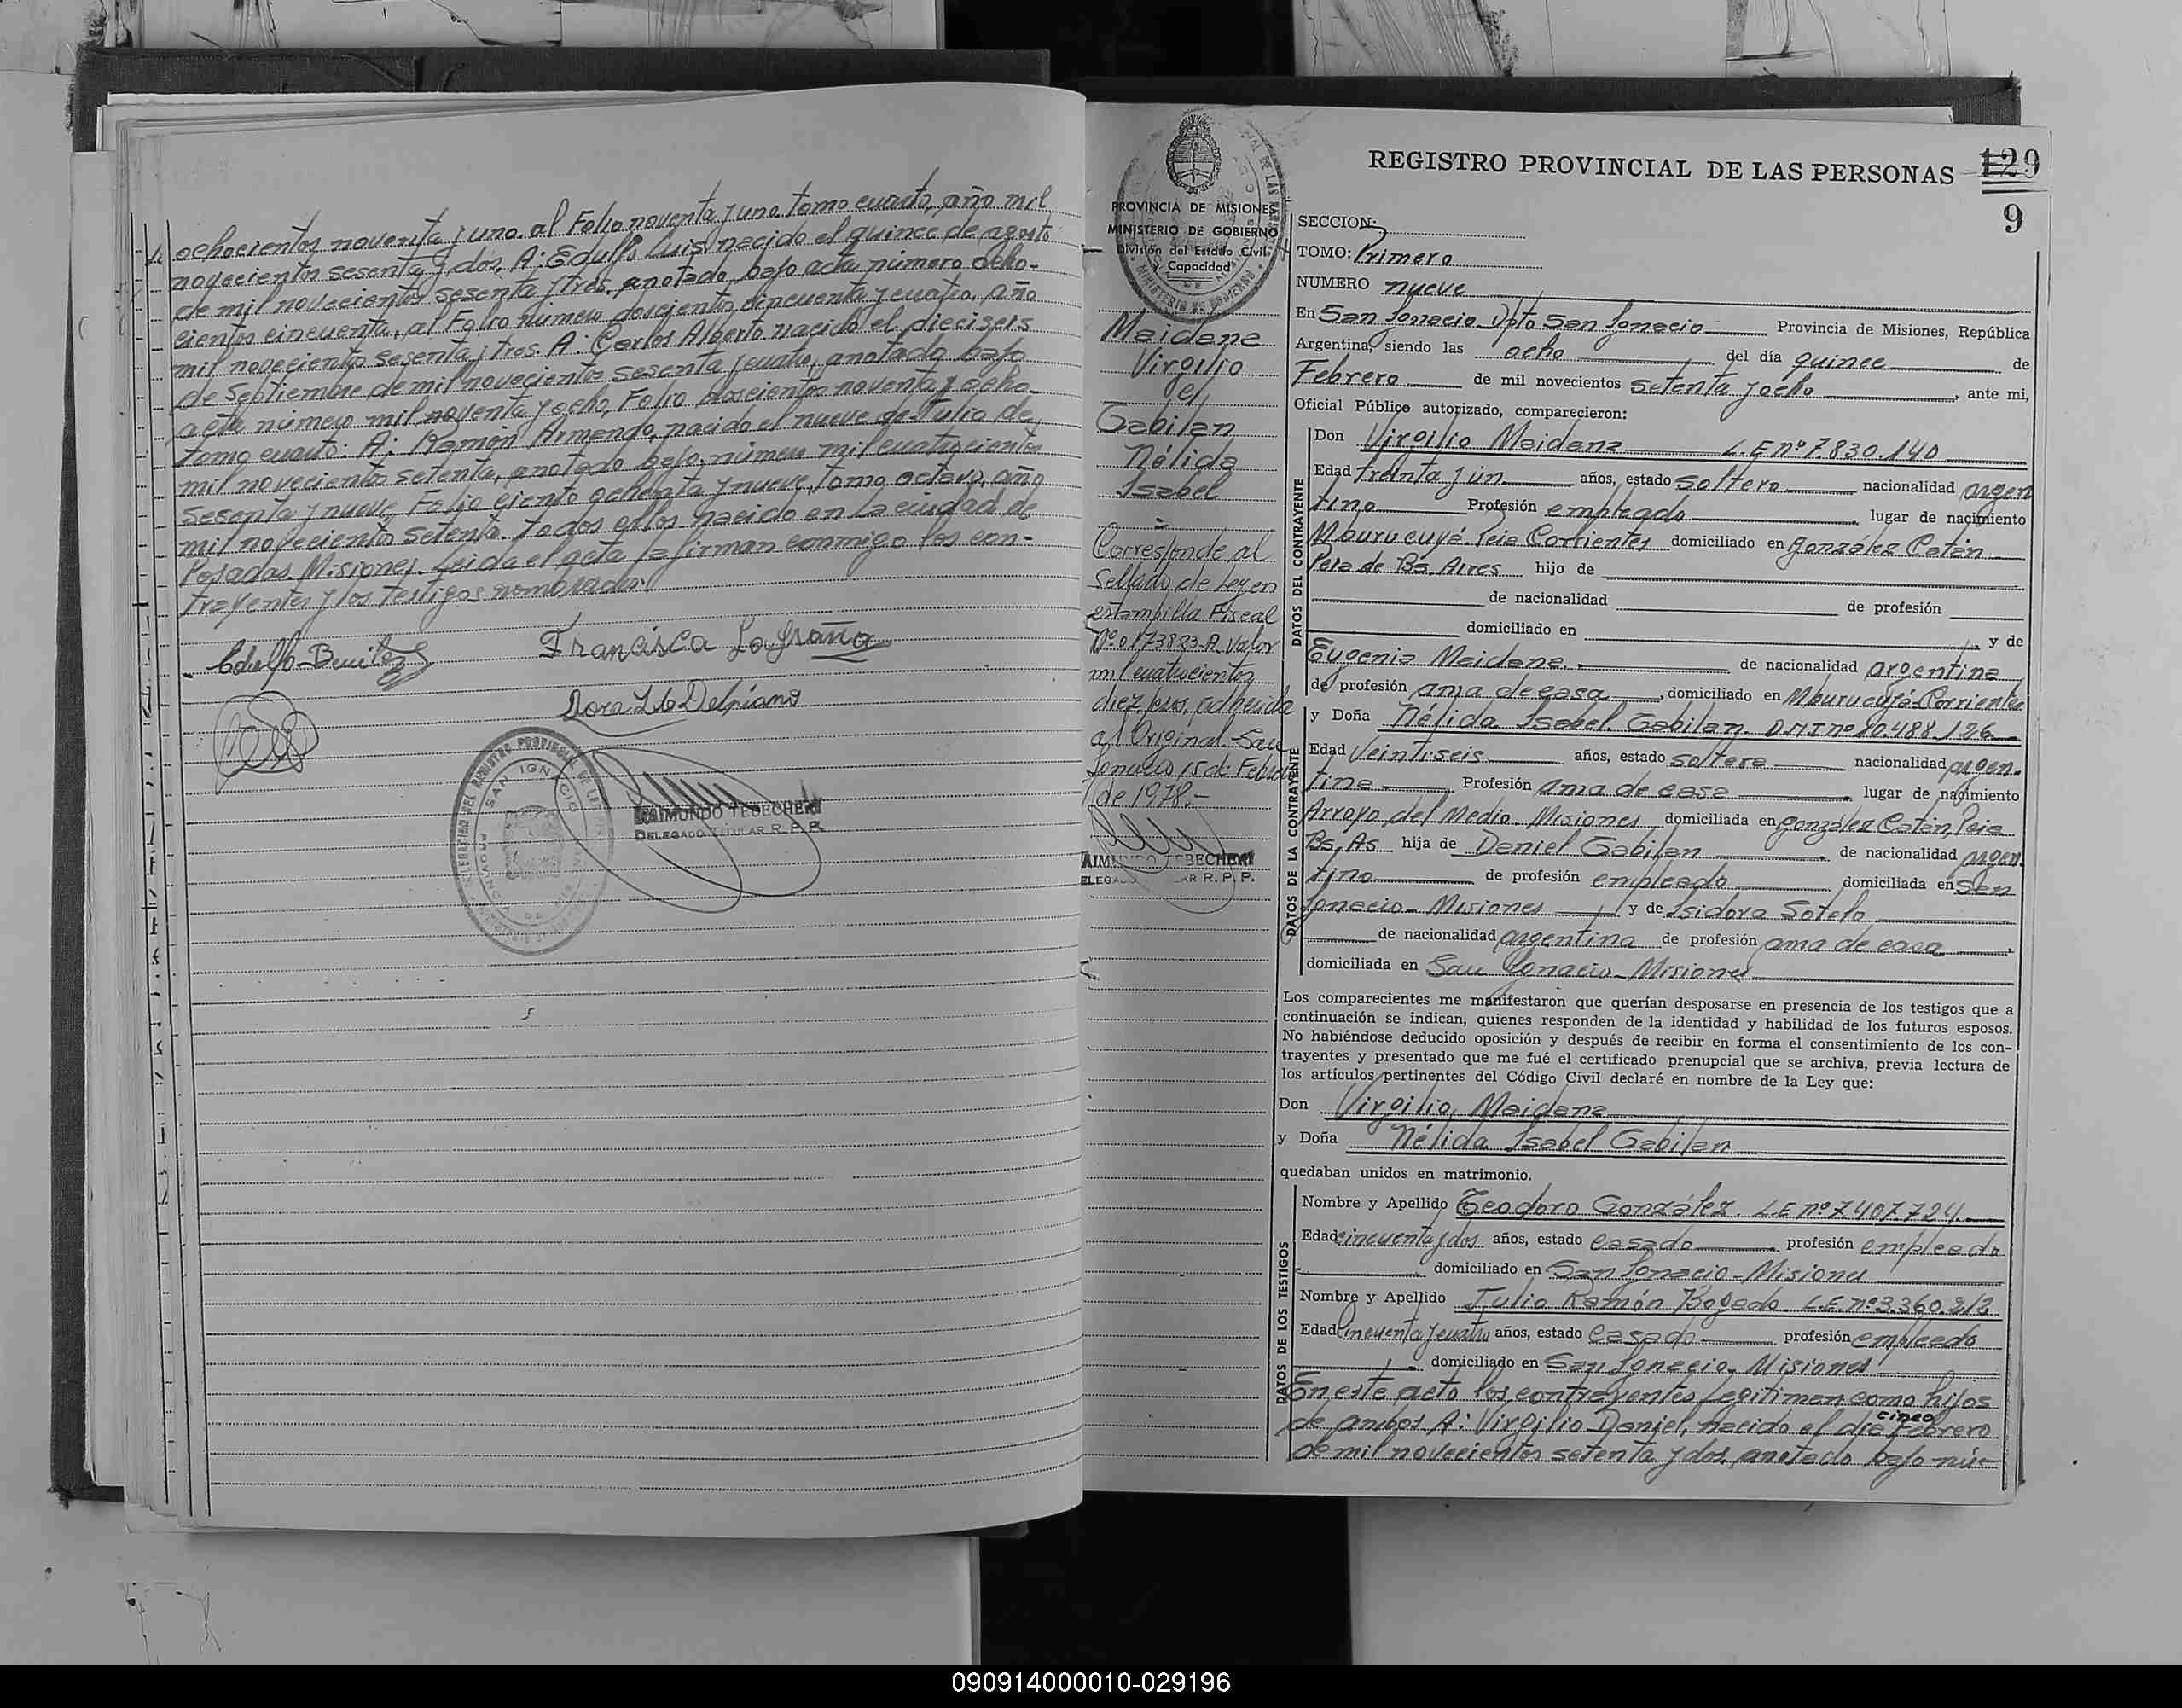 ochocientos noventa y uno. al Folio noventa y uno. tomo cuarto, año mil
novecientos sesenta y dos. A: Edulfo Luis nacido el quince de agosto
de mil novecientos sesenta y tres. anotado bajo acta número ocho-
cientos cincuenta, al Folio número doscientos cincuenta y cuatro. año
mil novecientos sesenta y tres. A: Carlos Alberto nacido el dieciseis
de Septiembre de mil novecientos sesenta y cuatro, anotado bajo
acta número mil noventa y ocho, Folio doscientos noventa y ocho
tomo cuarto: A: Ramón Armando, nacido el nueve de Julio de
mil novecientos setenta, anotado bajo número mil cuatrocientos
sesenta y nueve Folio ciento ochenta y nueve, tomo octavo, año
mil novecientos setenta. todos ellos nacido en la ciudad de
Posadas. Misiones. Leida el acta la firman conmigo los con-
trayentes y los testigos nombrados.
Edulfo Benitez
Francisca Lagraña
Dora L de Delpiano
SAN IGNACIO
RAIMUNDO TEBECHERI
DELEGADO TITULAR R. P. P.
PROVINCIA DE MISIONES
MINISTERIO DE GOBIERNO
División del Estado Civil
y Capacidad
Maidana
Virgilio
y
Gabilan
Nélida
Isabel
Corresponde al
Sellado de Ley en
estampilla Fiscal
Nº 0173823-A. Valor
mil cuatrocientos
diez pesos, adherida
al Original. San
Ignacio 15 de Febrero
de 1978.-
RAIMUNDO TEBECHERI
DELEGADO TITULAR R. P. P.
REGISTRO PROVINCIAL DE LAS PERSONAS 129
9
SECCION:
TOMO: Primero
NUMERO nueve
En San Ignacio Dpto San Ignacio Provincia de Misiones, República
Argentina, siendo las ocho del día quince de
Febrero de mil novecientos setenta y ocho, ante mi,
Oficial Público autorizado, comparecieron:
DATOS DEL CONTRAYENTE
Don Virgilio Maidana L.E nº 7.830.140
Edad treinta y un años, estado soltero nacionalidad argen
tino Profesión empleado, lugar de nacimiento
Mburucuyá. Pcia Corrientes domiciliado en González Catán
Pcia de Bs. Aires hijo de
de nacionalidad de profesión
domiciliado en, y de
Eugenia Maidana. de nacionalidad argentina
de profesión ama de casa, domiciliado en Mburucuyá-Corrientes
DATOS DE LA CONTRAYENTE
y Doña Nélida Isabel. Gabilan. D.N.I nº 10.488.126
Edad Veintiseis años, estado soltera nacionalidad argen-
tina Profesión ama de casa, lugar de nacimiento
Arroyo del Medio. Misiones domiciliada en González Catán, Pcia
Bs. As hija de Daniel Gabilan, de nacionalidad argen-
tino de profesión empleado domiciliada en San
Ignacio- Misiones y de Isidora Sotelo
de nacionalidad argentina de profesión ama de casa,
domiciliada en San Ignacio- Misiones
Los comparecientes me manifestaron que querían desposarse en presencia de los testigos que a
continuación se indican, quienes responden de la identidad y habilidad de los futuros esposos.
No habiéndose deducido oposición y después de recibir en forma el consentimiento de los con-
trayentes y presentado que me fué el certificado prenupcial que se archiva, previa lectura de
los artículos pertinentes del Código Civil declaré en nombre de la Ley que:
Don Virgilio, Maidana
y Doña Nélida Isabel Gabilan
quedaban unidos en matrimonio.
DATOS DE LOS TESTIGOS
Nombre y Apellido Teodoro González. L.E nº 7.407.724.
Edad cincuenta y dos años, estado casado profesión empleado
domiciliado en San Ignacio-Misiones
Nombre y Apellido Julio Ramón Bogado. L.E. nº 3.360.212
Edad Cincuenta y cuatro años, estado Casado profesión empleado
domiciliado en San Ignacio- Misiones
En este acto los contrayentes legitiman como hijos
de ambos A: Virgilio Daniel, nacido el día cinco Febrero
de mil novecientos setenta y dos, anotado bajo nú-
090914000010-029196